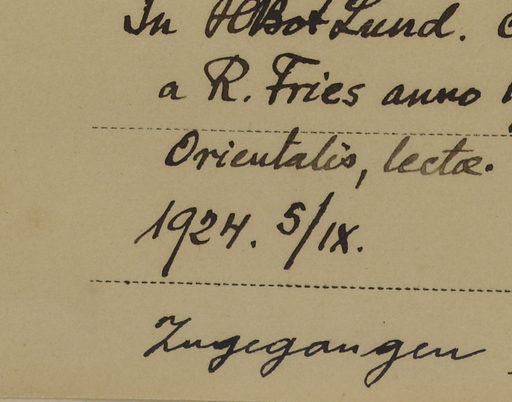 In HBot Lund.
a R. Fries anno
Orientalis, lectæ.
1924. 5/IX.
Zugegangen